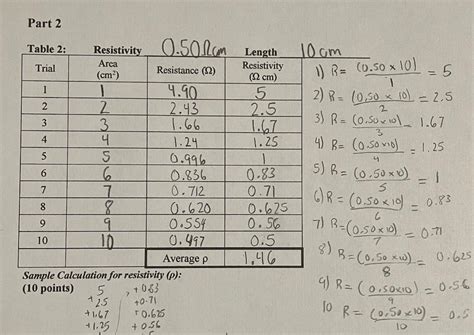 Part 2
Table 2: Resistivity 0.50 Ωcm Length 10 cm
Trial Area (cm²) Resistance (Ω) Resistivity (Ω cm)
1 1 4.90 5
2 2 2.43 2.5
3 3 1.66 1.67
4 4 1.24 1.25
5 5 0.996 1
6 6 0.836 0.83
7 7 0.712 0.71
8 8 0.620 0.625
9 9 0.554 0.56
10 10 0.497 0.5
Average ρ 1.46
Sample Calculation for resistivity (ρ):
(10 points)
5 + 0.83
+ 2.5 + 0.71
+ 1.67 + 0.625
+ 1.25 + 0.56
1) R = (0.50 × 10) / 1 = 5
2) R = (0.50 × 10) / 2 = 2.5
3) R = (0.50 × 10) / 3 = 1.67
4) R = (0.50 × 10) / 4 = 1.25
5) R = (0.50 × 10) / 5 = 1
6) R = (0.50 × 10) / 6 = 0.83
7) R = (0.50 × 10) / 7 = 0.71
8) R = (0.50 × 10) / 8 = 0.625
9) R = (0.50 × 10) / 9 = 0.56
10 R = (0.50 × 10) / 10 = 0.5